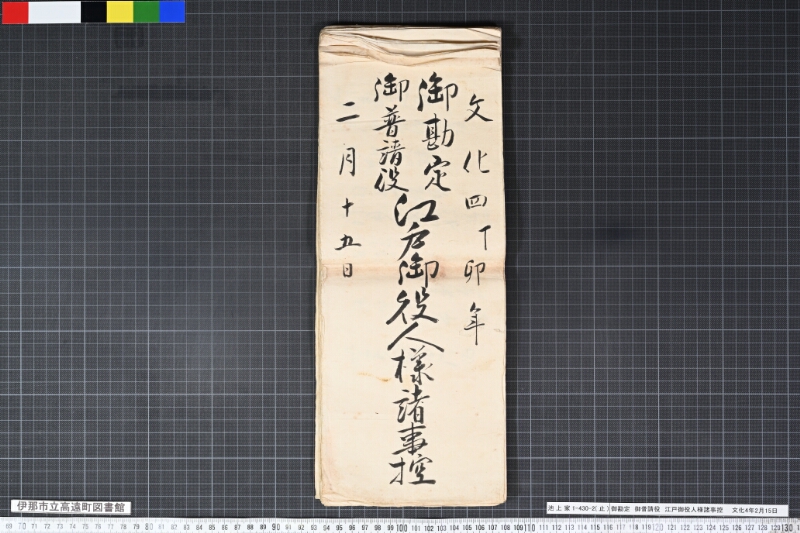 文化四丁卯年
御勘定
御普請役
江戸御役人様諸事控
二月十五日
伊那市立高遠町図書館
池上家 1-430-2(止) 御勘定 御普請役 江戸御役人様諸事控 文化4年2月15日